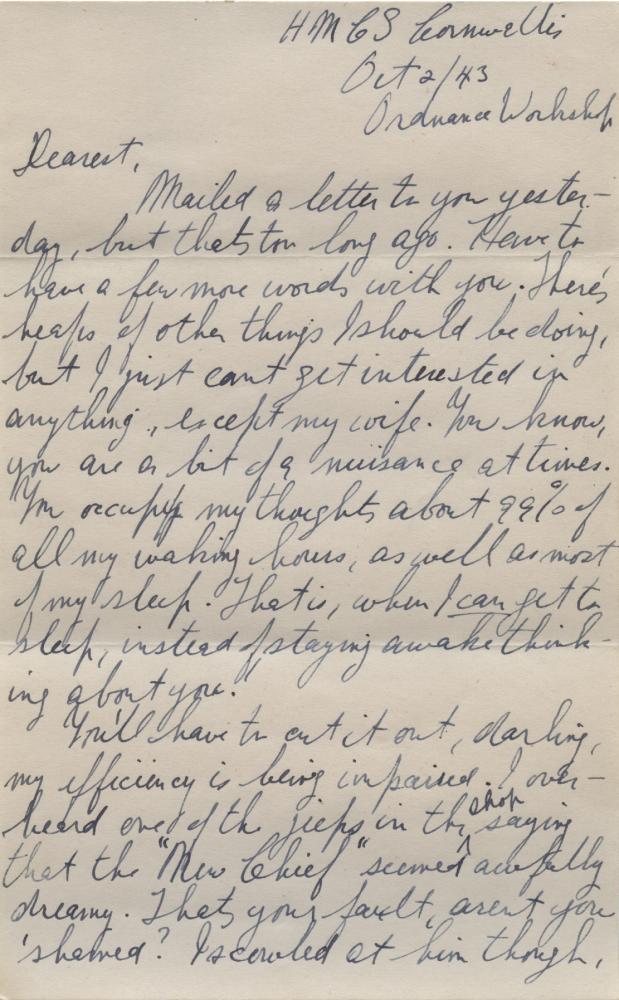 HMCS Cornwallis
Oct 2/43
Ordnance Workshop
Dearest,
Mailed a letter to you yester-
day, but thats too long ago. Have to
have a few more words with you. There's
heaps of other things I should be doing,
but I just cant get interested in
anything, except my wife. You know,
you are a bit of a nuisance at times.
You occupy my thoughts about 99% of
all my waking hours, as well as most
of my sleep. That is, when I can get to
sleep, instead of staying awake think-
ing about you.
You'll have to cut it out, darling,
my efficiency is being impaired. I over-
heard one of the jeeps in the shop saying
that the "New Chief" seemed awfully
dreamy. Thats your fault, arent you
'shamed? I scowled at him though,